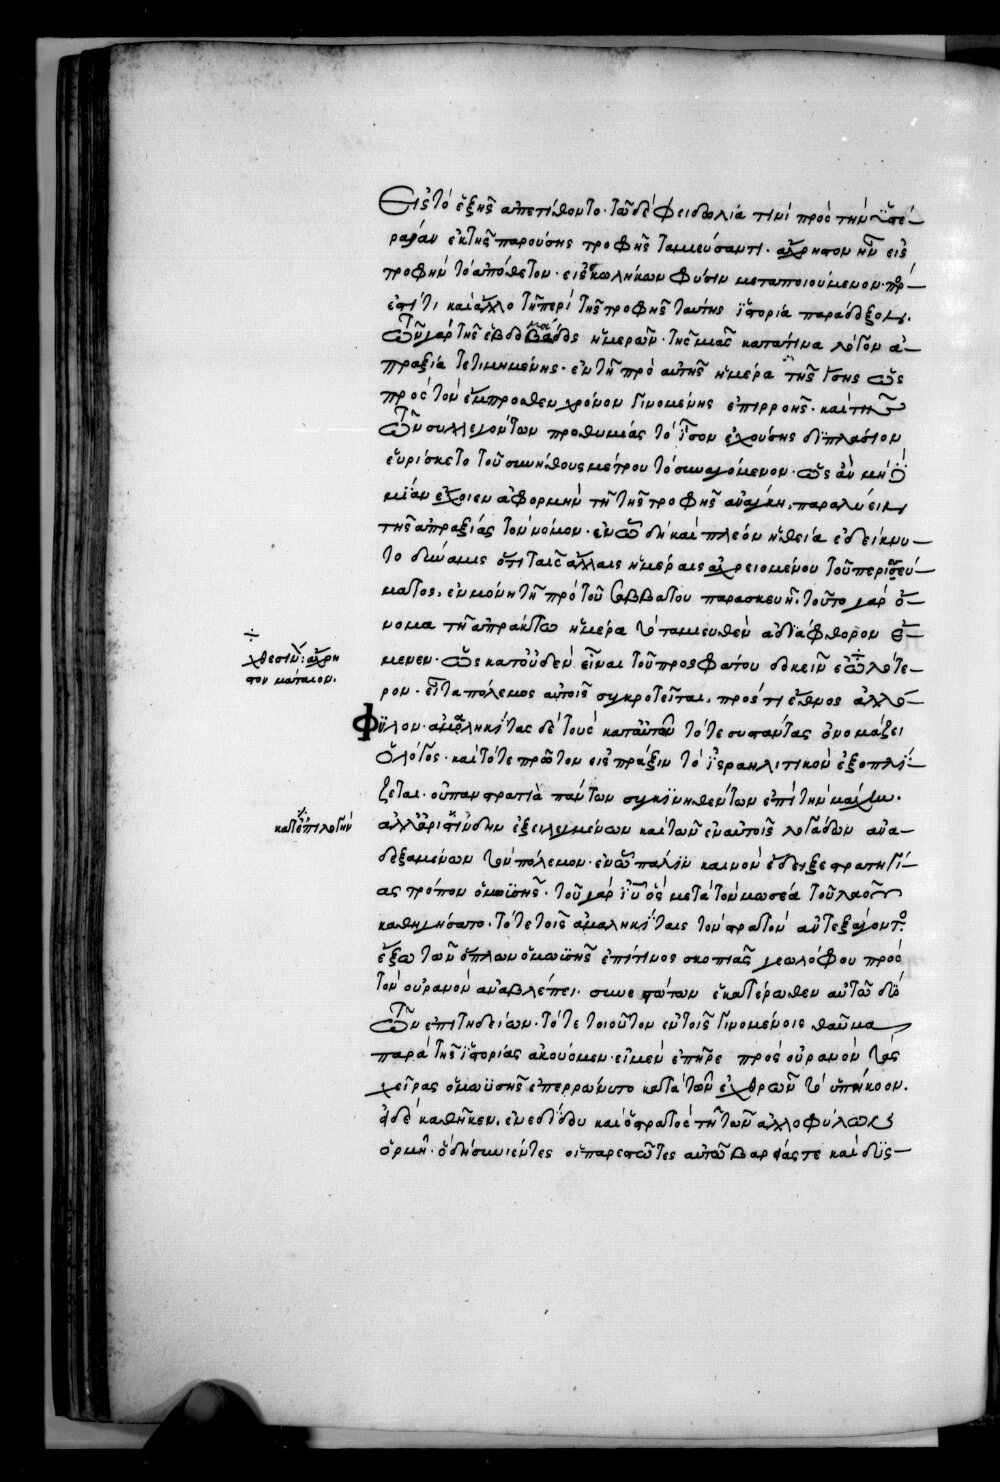 Εἰς τὸ ἑξῆς ἀπετίθοντο· τῶ δὲ φειδωλία τινὶ πρὸς τὴν ὑστέ-
ραίαν ἐκ τῆς παρούσης τροφῆς ταμιεύσαντι· ἄχρηστον ἦν εἰς
τροφὴν τὸ ἀπόθετον· εἰς σκωλήκων φύσιν μεταποιούμενον· πρό-
ἐστί τι καὶ ἄλλο τῆ περὶ τῆς τροφῆς ταύτης ἱστορία παράδοξον.
τῶν γὰρ τῆς ἑβδομάδος ἡμερῶν· τῆς μιᾶς κατά τινα λόγον ἀ-
πραξία τετιμημένης· ἐν τῆ πρὸ αὐτῆς ἡμέρα τῆς ἴσης ὡς
πρὸς τὸν ἔμπροσθεν χρόνον γινομένης ἐπιρροῆς· καὶ τῆς
τῶν συλλεγόντων προθυμίας τὸ ἴσον ἐχούσης διπλάσιον
εὑρίσκετο τοῦ συνήθους μέτρου τὸ συναγόμενον· ὡς ἂν μὴ δι
μίαν ἔχοιεν ἀφορμὴν τῆ τῆς τροφῆς ἀνάγκη, παραλύειν
τῆς ἀπραξίας τὸν νόμον· ἐν ὧ δὴ καὶ πλέον ἡ θεία ἐδείκνυ-
το δύναμις ὅτι ταῖς ἄλλαις ἡμέραις ἀχρειουμένου τοῦ περισσεύ-
ματος, ἐν μόνη τῆ πρὸ τοῦ σαββάτου παρασκευῆ. τοῦτο γὰρ ὄ-
νομα τῆ ἀπράκτω ἡμέρα τὸ ταμιευθὲν ἀδιάφθορον ἔ-
μενεν· ὡς κατ' οὐδὲν εἶναι τοῦ προσφάτου δοκεῖν ἑωλότε-
ρον· εἶτα πόλεμος αὐτοῖς συγκροτεῖται, πρός τι ἔθνος ἀλλό-
φυλον· ἀμαληκίτας δὲ τοὺς κατ' αὐτῶν τότε συστάντας ὀνομάζει
ὁ λόγος· καὶ τότε πρῶτον εἰς πρᾶξιν τὸ ἰσραηλιτικὸν ἐξοπλί-
ζεται· οὐ πανστρατιὰ πάντων συγκινηθέντων ἐπὶ τὴν μάχην.
ἀλλ' ἀριστίνδην ἐξειλεγμένων καὶ τῶν ἐν αὐτοῖς λογάδων ἀνα-
δεξαμένων τὸν πόλεμον· ἐν ὧ πάλιν καινὸν ἔδειξε στρατηγί-
ας τρόπον ὁ μωϋσῆς· τοῦ γὰρ ἰῦ ὃς μετὰ τὸν μωσέα τοῦ λαοῦ
καθηγήσατο· τότε τοῖς ἀμαληκίταις τὸν στρατὸν ἀντεξάγοντος
ἔξω τῶν ὅπλων ὁ μωϋσῆς ἐπί τινος σκοπιᾶς γεωλόφου πρὸς
τὸν οὐρανὸν ἀναβλέπει· συνεστώτων ἑκατέρωθεν αὐτῶ δύο
τῶν ἐπιτηδείων· τότε τοιοῦτον ἐν τοῖς γινομένοις θαῦμα
παρὰ τῆς ἱστορίας ἀκούομεν· εἰ μὲν ἐπῆρε πρὸς οὐρανὸν τὰς
χεῖρας ὁ μωϋσῆς ἐπερρώννυτο κατὰ τῶν ἐχθρῶν τὸ ὑπήκοον.
εἰ δὲ καθῆκεν, ἐνεδίδου καὶ ὁ στρατὸς τῆ τῶν ἀλλοφύλων
ὁρμῆ· ὃ δὴ συνιέντες οἱ παρεστῶτες αὐτῶ βαρείας τε καὶ δυς-
χθεσινόν: ἄχρη
στον μάταιον.
κατ' ἐπιλογήν